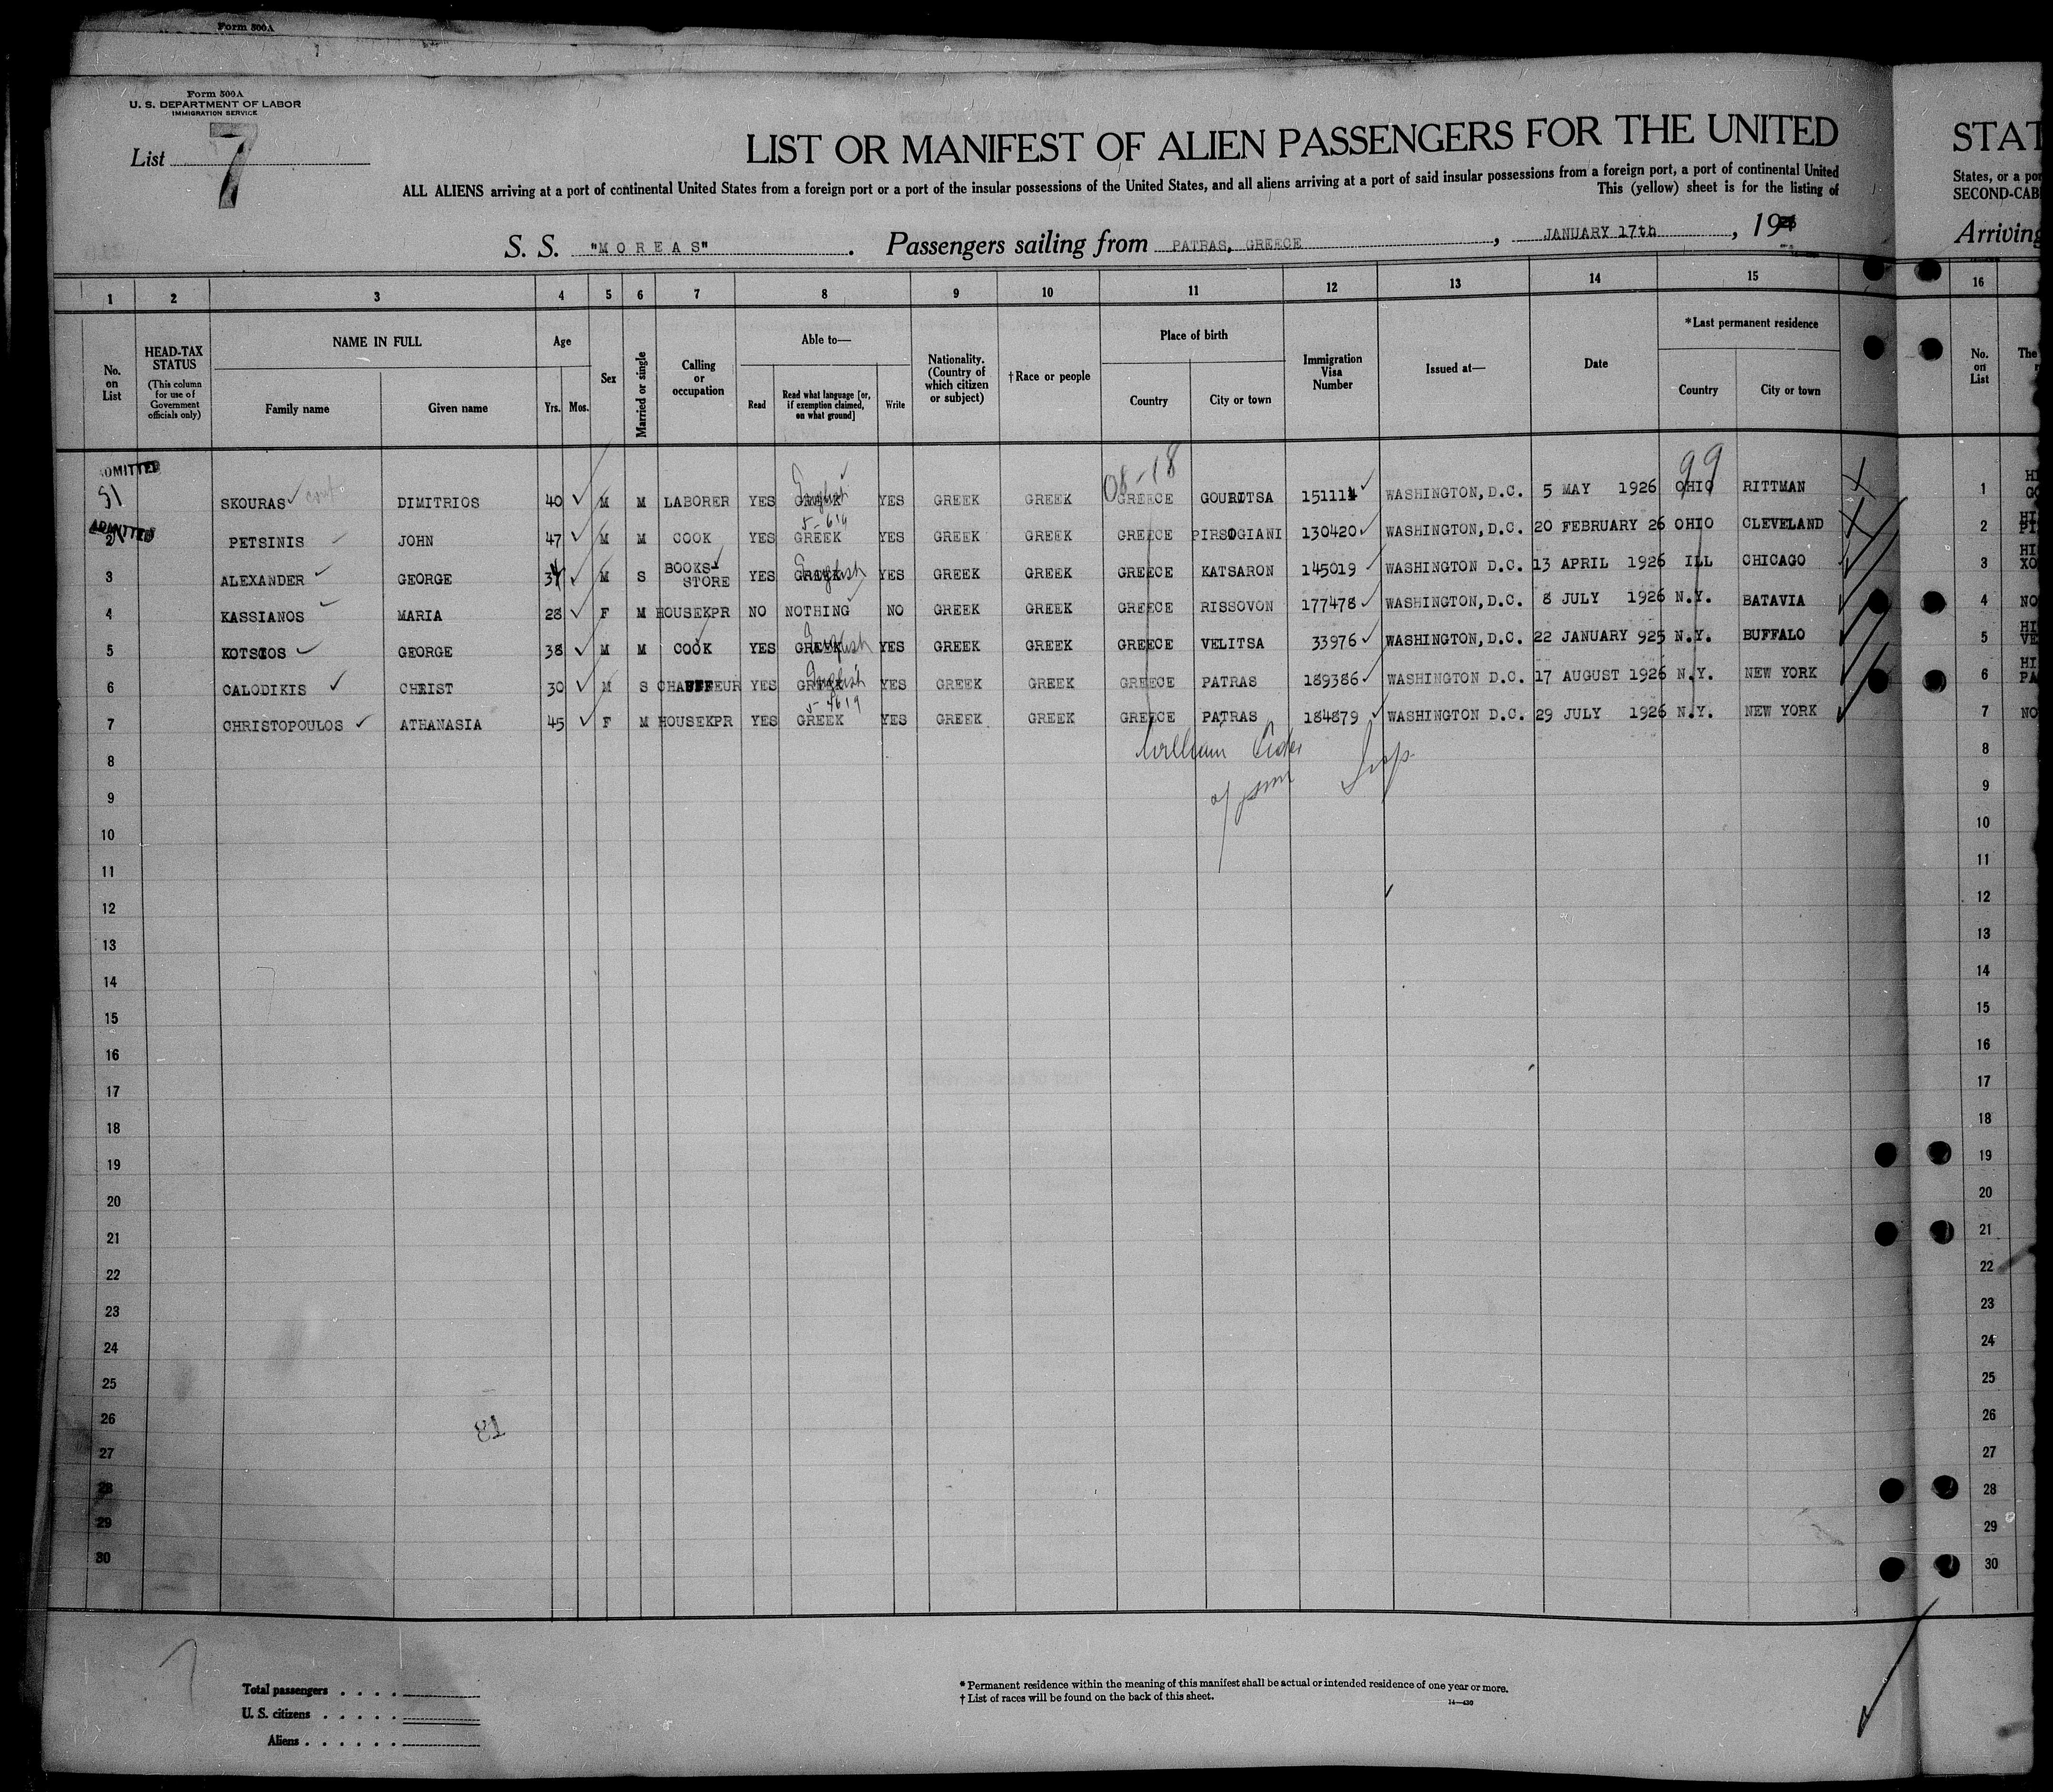 Form 500A
Form 500A
U. S. DEPARTMENT OF LABOR
IMMIGRATION SERVICE
List 7
LIST OR MANIFEST OF ALIEN PASSENGERS FOR THE UNITED
STAT
ALL ALIENS arriving at a port of continental United States from a foreign port or a port of the insular possessions of the United States, and all aliens arriving at a port of said insular possessions from a foreign port, a port of continental United
States, or a por
This (yellow) sheet is for the listing of
SECOND-CAB
S. S. "MOREAS". Passengers sailing from PATRAS, GREECE, JANUARY 17th, 19
Arriving
1 2 3 4 5 6 7 8 9 10 11 12 13 14 15 16
No. on List
HEAD-TAX STATUS (This column for use of Government officials only)
NAME IN FULL
Family name
Given name
Age
Yrs. Mos.
Sex
Married or single
Calling or occupation
Able to—
Read
Read what language [or, if exemption claimed, on what ground]
Write
Nationality. (Country of which citizen or subject)
†Race or people
Place of birth
Country
City or town
Immigration Visa Number
Issued at—
Date
*Last permanent residence
Country
City or town
No. on List
The
ADMITTED
08-18 99
1 SKOURAS DIMITRIOS 40 M M LABORER YES GREEK English YES GREEK GREEK GREECE GOURITSA 151114 WASHINGTON, D.C. 5 MAY 1926 OHIO RITTMAN 1
ADMITTED
2 PETSINIS JOHN 47 M M COOK YES GREEK YES GREEK GREEK GREECE PIRSOGIANI 130420 WASHINGTON, D.C. 20 FEBRUARY 26 OHIO CLEVELAND 2
3 ALEXANDER GEORGE M S BOOKS- STORE YES GREEK English YES GREEK GREEK GREECE KATSARON 145019 WASHINGTON D.C. 13 APRIL 1926 ILL CHICAGO 3
4 KASSIANOS MARIA 28 F M HOUSEKPR NO NOTHING NO GREEK GREEK GREECE RISSOVON 177478 WASHINGTON, D.C. 8 JULY 1926 N.Y. BATAVIA 4 NO
5 KOTSIOS GEORGE 38 M M COOK YES GREEK English YES GREEK GREEK GREECE VELITSA 33976 WASHINGTON, D.C. 22 JANUARY 925 N.Y. BUFFALO 5
6 CALODIKIS CHRIST 30 M S CHAUFFEUR YES GREEK English YES GREEK GREEK GREECE PATRAS 189386 WASHINGTON D.C. 17 AUGUST 1926 N.Y. NEW YORK 6
7 CHRISTOPOULOS ATHANASIA 45 F M HOUSEKPR YES GREEK YES GREEK GREEK GREECE PATRAS 184879 WASHINGTON D.C. 29 JULY 1926 N.Y. NEW YORK 7 NO
William
Insp
8 8
9 9
10 10
11 11
12 12
13 13
14 14
15 15
16 16
17 17
18 18
19 19
20 20
21 21
22 22
23 23
24 24
25 25
26 26
27 27
28 28
29 29
30 30
Total passengers
U. S. citizens
Aliens
* Permanent residence within the meaning of this manifest shall be actual or intended residence of one year or more.
† List of races will be found on the back of this sheet.
14—430